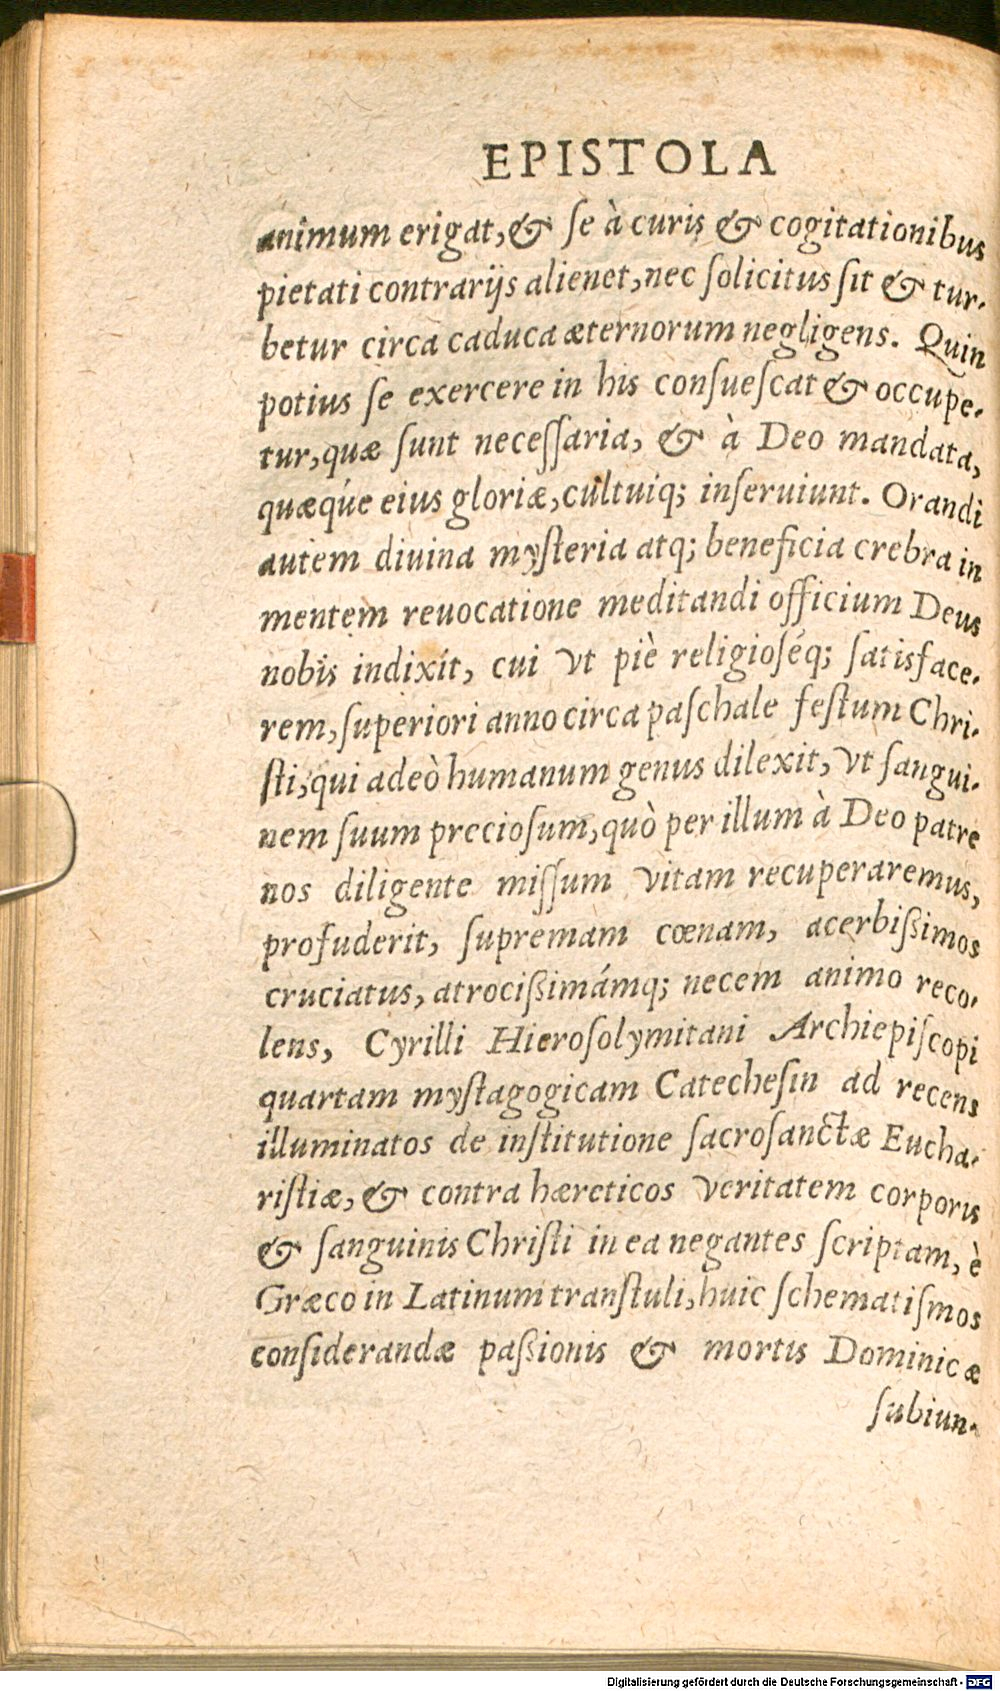 EPISTOLA
animum erigat, & ſe à curis & cogitationibus
pietati contrarijs alienet, nec ſolicitus ſit & tur-
betur circa caduca æternorum negligens. Quin
potius ſe exercere in his conſueſcat & occupe-
tur, quæ ſunt neceſſaria, & à Deo mandata,
quæq́ue eius gloriæ, cultuiq; inſeruiunt. Orandi
autem diuina myſteria atq; beneficia crebra in
mentem reuocatione meditandi officium Deus
nobis indixit, cui vt piè religioſéq; ſatisface-
rem, ſuperiori anno circa paſchale feſtum Chri-
ſti, qui adeò humanum genus dilexit, vt ſangui-
nem ſuum precioſum, quò per illum à Deo patre
nos diligente miſſum vitam recuperaremus,
profuderit, ſupremam cœnam, acerbißimos
cruciatus, atrocißimámq; necem animo reco-
lens, Cyrilli Hieroſolymitani Archiepiſcopi
quartam myſtagogicam Catecheſin ad recens
illuminatos de inſtitutione ſacroſanctæ Eucha-
riſtiæ, & contra hæreticos veritatem corporis
& ſanguinis Chriſti in ea negantes ſcriptam, è
Græco in Latinum tranſtuli, huic ſchematiſmos
conſiderandæ paßionis & mortis Dominicæ
ſubiun-
Digitalisierung gefördert durch die Deutsche Forschungsgemeinschaft - DFG